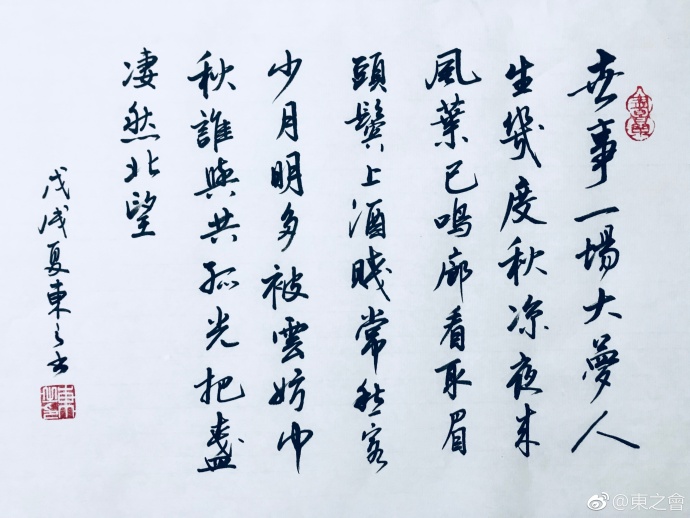 世事一場大夢人
生幾度秋凉夜來
風葉已鳴廊看取眉
頭鬢上酒賤常愁客
少月明多被雲妨中
秋誰與共孤光把盞
凄然北望
戊戌夏東之書
@東之會